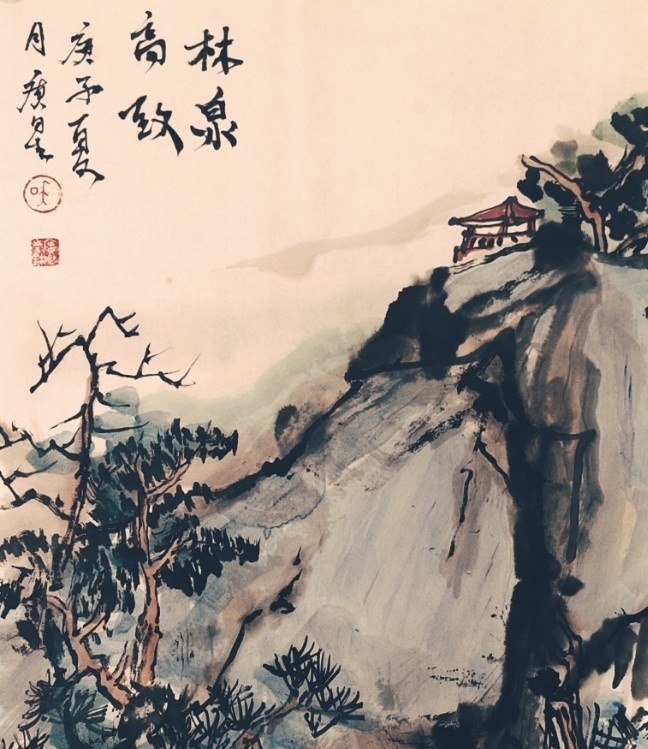 林泉
高致
庚子夏
月廣星